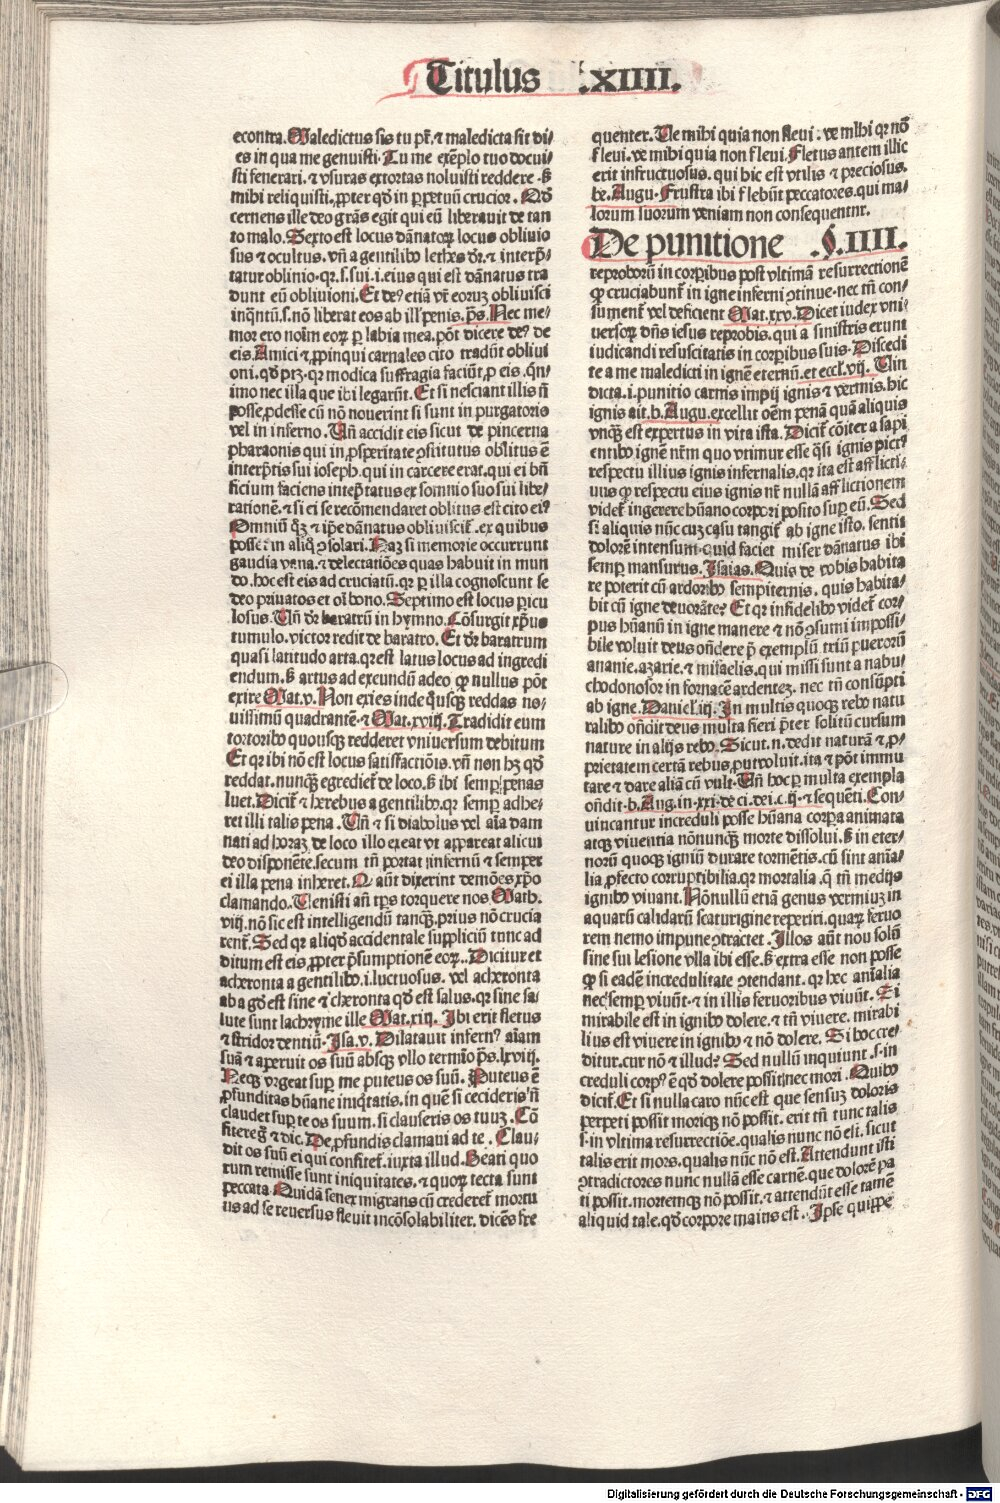 Titulus .XIIII.
econtra. Maledictus sis tu pr̄. ⁊ maledicta sit di⸗
es in qua me genuisti. Tu me exēplo tuo docui⸗
sti fenerari. ⁊ vsuras extortas noluisti reddere. ß
mihi reliquisti. ꝓpter qđ in ꝑpetuū crucior. Qđ
cernens ille deo grās egit qui eū liberauit de tan
to malo. Sexto est locus dānatoꝝ locus obliuio
sus ⁊ ocultus. vn̄ a gentilibꝰ lethes dr̄. ⁊ interp̄⸗
tatur obliuio. qꝛ .s. sui .i. eius qui est dānatus tra
dunt eū obliuioni. Et deꝰ etiā vr̄ eoruꝫ obliuisci
inqntū .s. nō liberat eos ab ill̓ penis. ps̄. Nec me⸗
mor ero noīm eoꝝ ꝑ labia mea. pōt dicere deꝰ de
eis. Amici ⁊ ꝓpinqui carnales cito tradūt obliui
oni. qđ ptꝫ. qꝛ modica suffragia faciūt ꝓ eis. qn̄⸗
imo nec illa que ibi legarūt. Et si nesciant illis n̄
posse ꝓdesse cū nō nouerint si sunt in purgatorio
vel in inferno. Un̄ accidit eis sicut de pincerna
pharaonis qui in ꝓsperitate ꝯstitutus oblitus ē
interp̄tis sui ioseph. qui in carcere erat. qui ei bn̄
ficium faciens intep̄tatus ex somnio suo sui libe⸗
rationē. ⁊ si ei se recōmendaret oblitus est cito eiꝰ
Omniū qꝫ ⁊ ip̄e dānatus obliuiscit̄. ex quibus
posset in aliqͦ ꝯsolari. Naꝫ si memorie occurrunt
gaudia vana. ⁊ delectatiōes quas habuit in mun
do. hoc est eis ad cruciatū. qꝛ ꝑ illa cognoscunt se
deo priuatos et oī bono. Septimo est locus ꝑicu
losus. Un̄ dr̄ baratrū in hymno. Cōsurgit xp̄us
tumulo. victor redit de baratro. Et dr̄ baratrum
quasi latitudo arta. qꝛ est latus locus ad ingredi
endum. ß artus ad exeundū adeo ꝙ nullus pōt
exire Mat. v. Non exies inde qͦusqꝫ reddas no⸗
uissimū quadrantē. ⁊ Mat. xviij. Tradidit eum
tortoribꝰ quousqꝫ redderet vniuersum debitum
Et qꝛ ibi nō est locus satisfactiōis. vn̄ non hꝫ qđ
reddat. nunqꝫ egrediet̄ de loco. ß ibi semꝑ penas
luet. Dicit̄ ⁊ herebus a gentilibꝰ. qꝛ semꝑ adhe⸗
ret illi talis pena. Un̄ ⁊ si diabolus vel aīa dam
nati ad horaꝫ de loco illo exeat vt appareat alicui
deo disponēte. secum tn̄ portat infernū ⁊ semper
ei illa pena inheret. Q aūt dixerint demōes xp̄o
clamando. Uenisti an̄ tp̄s torquere nos Math.
viij. nō sic est intelligendū tanqꝫ prius nō crucia
rent̄. Sed qꝛ aliqđ accidentale suppliciū tunc ad
ditum est eis. ꝓpter p̄sumptionē eoꝝ. Dicitur et
acheronta a gentilibꝰ .i. luctuosus. vel acheronta
ab a qđ est sine ⁊ cheronta qđ est salus. qꝛ sine sa⸗
lute sunt lachryme ille Mat. xiij. Ibi erit fletus
⁊ stridor dentiū. Isa. v. Dilatauit infernꝰ aīam
suā ⁊ aperuit os suū absqꝫ vllo termīo ps̄. lxviij.
Neqꝫ vrgeat suꝑ me puteus os suū. Puteus ē
ꝓfunditas hūane iniqͥtatis. in quē si cecideris n̄
claudet suꝑ te os suum. si clauseris os tuuꝫ. Cō
fitere gͦ ⁊ dic. De ꝓfundis clamaui ad te. Clau⸗
dit os suū ei qui confitet̄. iuxta illud. Beati quo
rum remisse sunt iniquitates. ⁊ quoꝝ tecta sunt
peccata. Quidā senex migrans cū crederet̄ mortu
us ad se reuersus fleuit incōsolabiliter. dicēs fre
quenter. Ue mihi quia non fleui: ve mihi qꝛ nō
fleui. ve mihi quia non fleui. Fletus autem illic
erit infructuosus. qui hic est vtilis ⁊ preciosus.
be. Augu. Frustra ibi flebūt peccatores. qui ma⸗
lorum suorum veniam non consequentur.
De punitione .§.IIII.
reproborū in corꝑibus post vltimā resurrectionē
ꝙ cruciabunt̄ in igne inferni ꝯtinue. nec tn̄ con⸗
sument̄ vel deficient Mat. xxv. Dicet iudex vni⸗
uersoꝝ dn̄s iesus reprobis. qui a sinistris erunt
iudicandi resuscitatis in corꝑibus suis. Discedi
te a me maledicti in ignē eternū. et eccl̓. vij. Uin
dicta .i. punitio carnis impij ignis ⁊ vermis. hic
ignis ait .b. Augu. excellit oēm penā quā aliquis
vnqꝫ est expertus in vita ista. Dicit̄ cōiter a sapi
entibꝰ ignē nr̄m quo vtimur esse qͣsi ignis pictꝰ
respectu illius ignis infernalis. qꝛ ita est afflicti⸗
uus ꝙ respectu eius ignis nr̄ nullā afflictionem
videt̄ ingerere hūano corpori posito suꝑ eū. Sed
si aliquis nūc cuꝫ casu tangit̄ ab igne isto. sentit
dolorē intensum. quid faciet miser dānatus ibi
semꝑ mansurus. Isaias. Quis de vobis habita
re poterit cū ardoribꝰ sempiternis. quis habita⸗
bit cū igne deuorāte? Et qꝛ infidelibꝰ videt̄ cor⸗
pus hūanū in igne manere ⁊ nō ꝯsumi impossi⸗
bile voluit deus ondere p̄ exemplū triū puerorū
ananie. azarie. ⁊ misaelis. qui missi sunt a nabu⸗
chodonosor in fornacē ardentez. nec tn̄ consūpti
ab igne. Daniel̓. iij. In multis quoqꝫ rebꝰ natu
ralibꝰ ondit deus multa fieri p̄ter solitū cursum
nature in alijs rebꝰ. Sicut .n. dedit naturā ⁊ ꝓ⸗
prietatem certā rebus. put voluit. ita ⁊ pōt immu
tare ⁊ dare aliā cū vult. Un̄ hoc ꝑ multa exempla
ondit .b. Aug. in .xxi. de ci. dei. c. ij. ⁊ sequēti. Con⸗
uincantur increduli posse hūana corꝑa animata
atqꝫ viuentia nōnunqꝫ morte dissolui. ß in eter⸗
norū quoqꝫ igniū durare tormētis. cū sint anīa⸗
lia ꝓfecto corruptibilia. qꝛ mortalia. q̄ tn̄ medijs
ignibꝰ viuant. Nōnullū etiā genus vermiuꝫ in
aquarū calidarū scaturigine reperiri. quaꝝ feruo
rem nemo impune ꝯtractet. Illos aūt nou solū
sine sui lesione vlla ibi esse. ß extra esse non posse
ꝙ si eadē incredulitate ꝯtendant. qꝛ hec anīalia
nec semꝑ viuūt. ⁊ in illis feruoribus viuūt. Ei
mirabile est in ignibꝰ dolere. ⁊ tn̄ viuere. mirabi
lius est viuere in ignibꝰ ⁊ nō dolere. Si hoc cre⸗
ditur. cur nō ⁊ illud? Sed nullū inquiunt .s. in
creduli corpꝰ ē qđ dolere possit. nec mori. Quibꝰ
dicit̄. Et si nulla caro nūc est que sensuꝫ doloris
perpeti possit moriqꝫ nō possit. erit tn̄ tunc talis
.s. in vltima resurrectiōe. qualis nunc nō est. sicut
talis erit mors. qualis nūc nō est. Attendunt isti
ꝯtradictores nunc nullā esse carnē. que dolorē pa
ti possit. mortemqꝫ nō possit. ⁊ attendūt esse tamē
aliquid tale. qđ corpore maius est. Ipse quippe
Digitalisierung gefördert durch die Deutsche Forschungsgemeinschaft - DFG